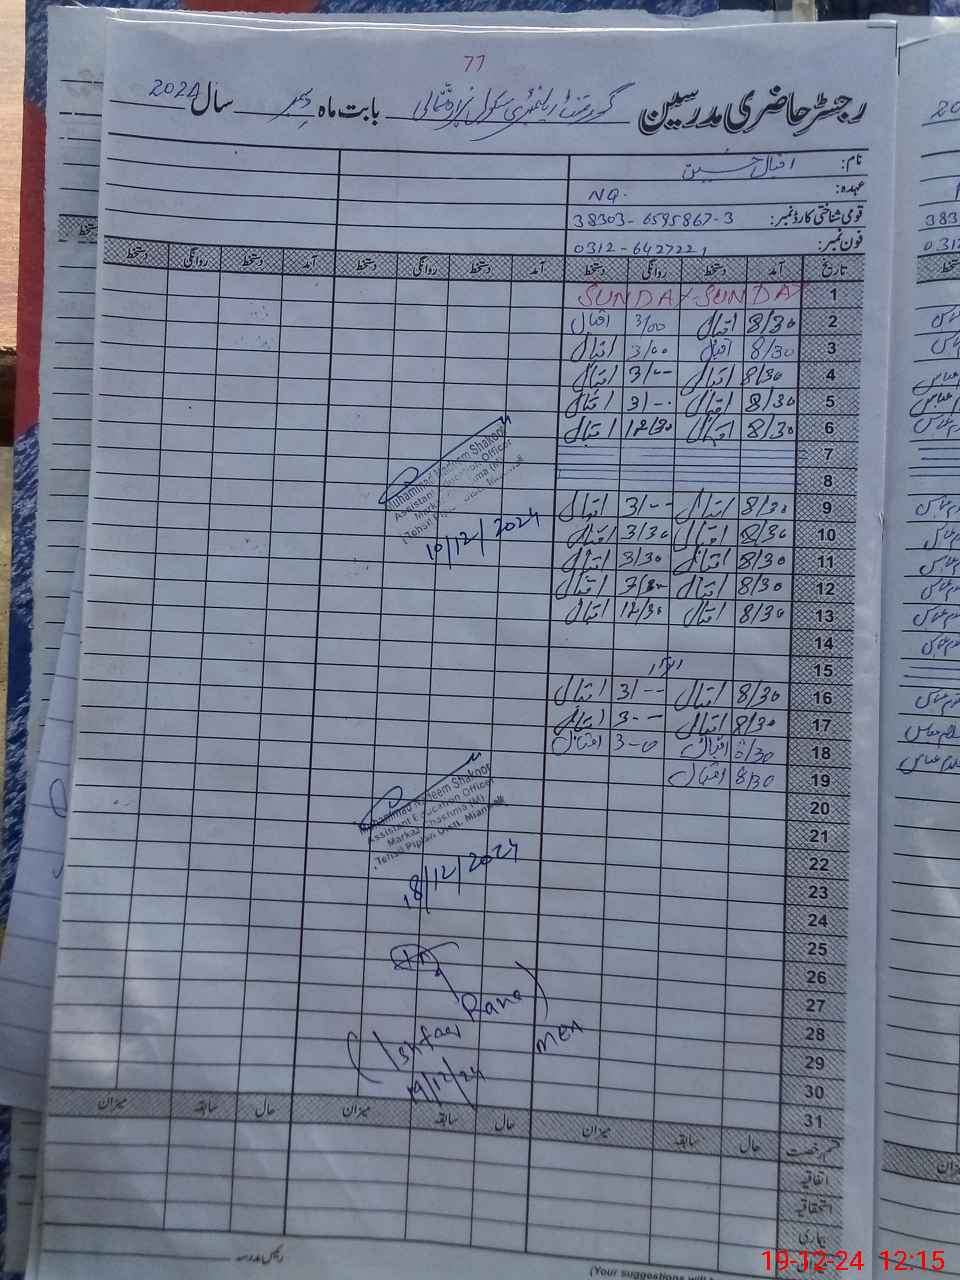 77
رجسٹر حاضری مدرسین گورنمنٹ ایلیمنٹری سکول بابت ماہ دسمبر سال 2024
نام: اقبال حسین
عہدہ: NQ.
قومی شناختی کارڈ نمبر: 38303-6595867-3
فون نمبر: 0312-6427221
تاریخ آمد دستخط روانگی دستخط آمد دستخط روانگی دستخط آمد دستخط روانگی دستخط
1 SUNDAY-SUNDAY
2 8/30 اقبال 3/00 اقبال
3 8/30 اقبال 3/00 اقبال
4 8/30 اقبال 3/-- اقبال
5 8/30 اقبال 3/-- اقبال
6 8/30 اقبال 12/30 اقبال
7
8
9 8/30 اقبال 3/-- اقبال
10 8/30 اقبال 3/30 اقبال
11 8/30 اقبال 3/30 اقبال
12 8/30 اقبال اقبال
13 8/30 اقبال 12/30 اقبال
14
15 اتوار
16 8/30 اقبال 3/-- اقبال
17 8/30 اقبال 3-- اقبال
18 8/30 اقبال 3-0 اقبال
19 8/30 اقبال
20
21
22
23
24
25
26
27
28
29
30
31
Muhammad Nadeem Shakoor
Assistant Education Officer
10/12/2024
Muhammad Nadeem Shakoor
Assistant Education Officer
Markaz Chashma (M)
Tehsil Piplan Distt. Mianwali
18/12/2024
(Ishfaq Rana)
MEA
19/12/24
قسم رخصت حال سابقہ میزان حال سابقہ میزان حال سابقہ میزان
اتفاقیہ
استحقاقیہ
بیماری
رئیس مدرسہ
(Your suggestions will
19-12-24 12:15